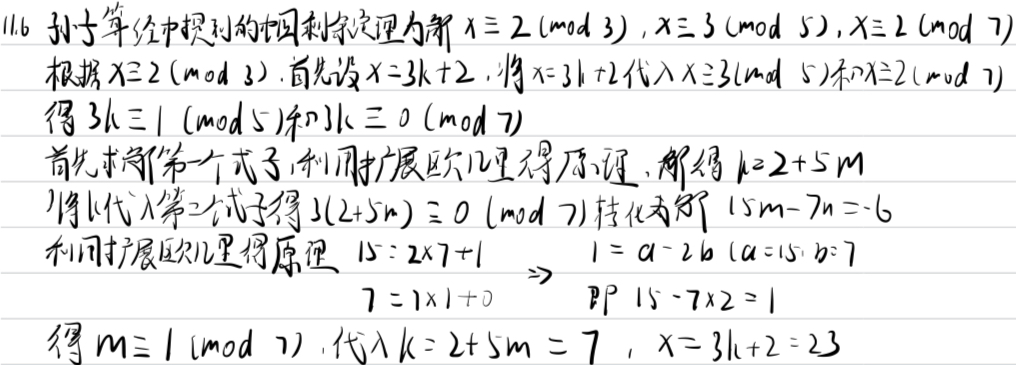 11.6 孙子算经中提到的中国剩余定理为解 x≡2(mod 3), x≡3(mod 5), x≡2(mod 7)
根据x≡2(mod 3).首先设x=3k+2,将x=3k+2代入x≡3(mod 5)和x≡2(mod 7)
得3k≡1(mod 5)和3k≡0(mod 7)
首先求解第一个式子,利用扩展欧几里得原理,解得k=2+5m
将k代入第二个式子得3(2+5m)≡0(mod 7)转化为解 15m-7n=-6
利用扩展欧几里得原理 15=2×7+1 ⇒ 1=a-2b (a=15, b=7
7=7×1+0 即 15-7×2=1
得m≡1(mod 7),代入k=2+5m=7, x=3k+2=23